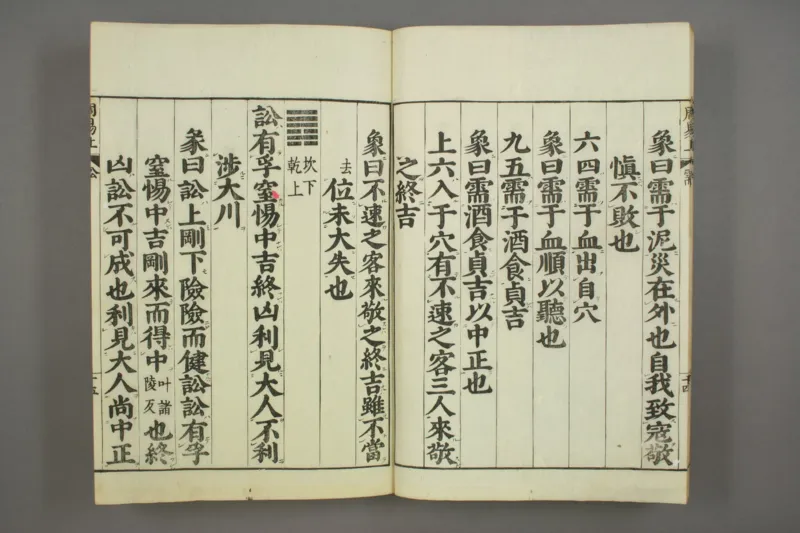 象曰需于泥災在外也自我致寇敬
慎不敗也
六四需于血出自穴
象曰需于血順以聽也
九五需于酒食貞吉
象曰需酒食貞吉以中正也
上六入于穴有不速之客三人來敬
之終吉
周易上
需
十四
象曰不速之客來敬之終吉雖不當
去
位未大失也
坎下
乾上
訟有孚窒惕中吉終凶利見大人不利
涉大川
彖曰訟上剛下險險而健訟訟有孚
窒惕中吉剛來而得中叶諸陵反也終
凶訟不可成也利見大人尚中正
周易上
十五